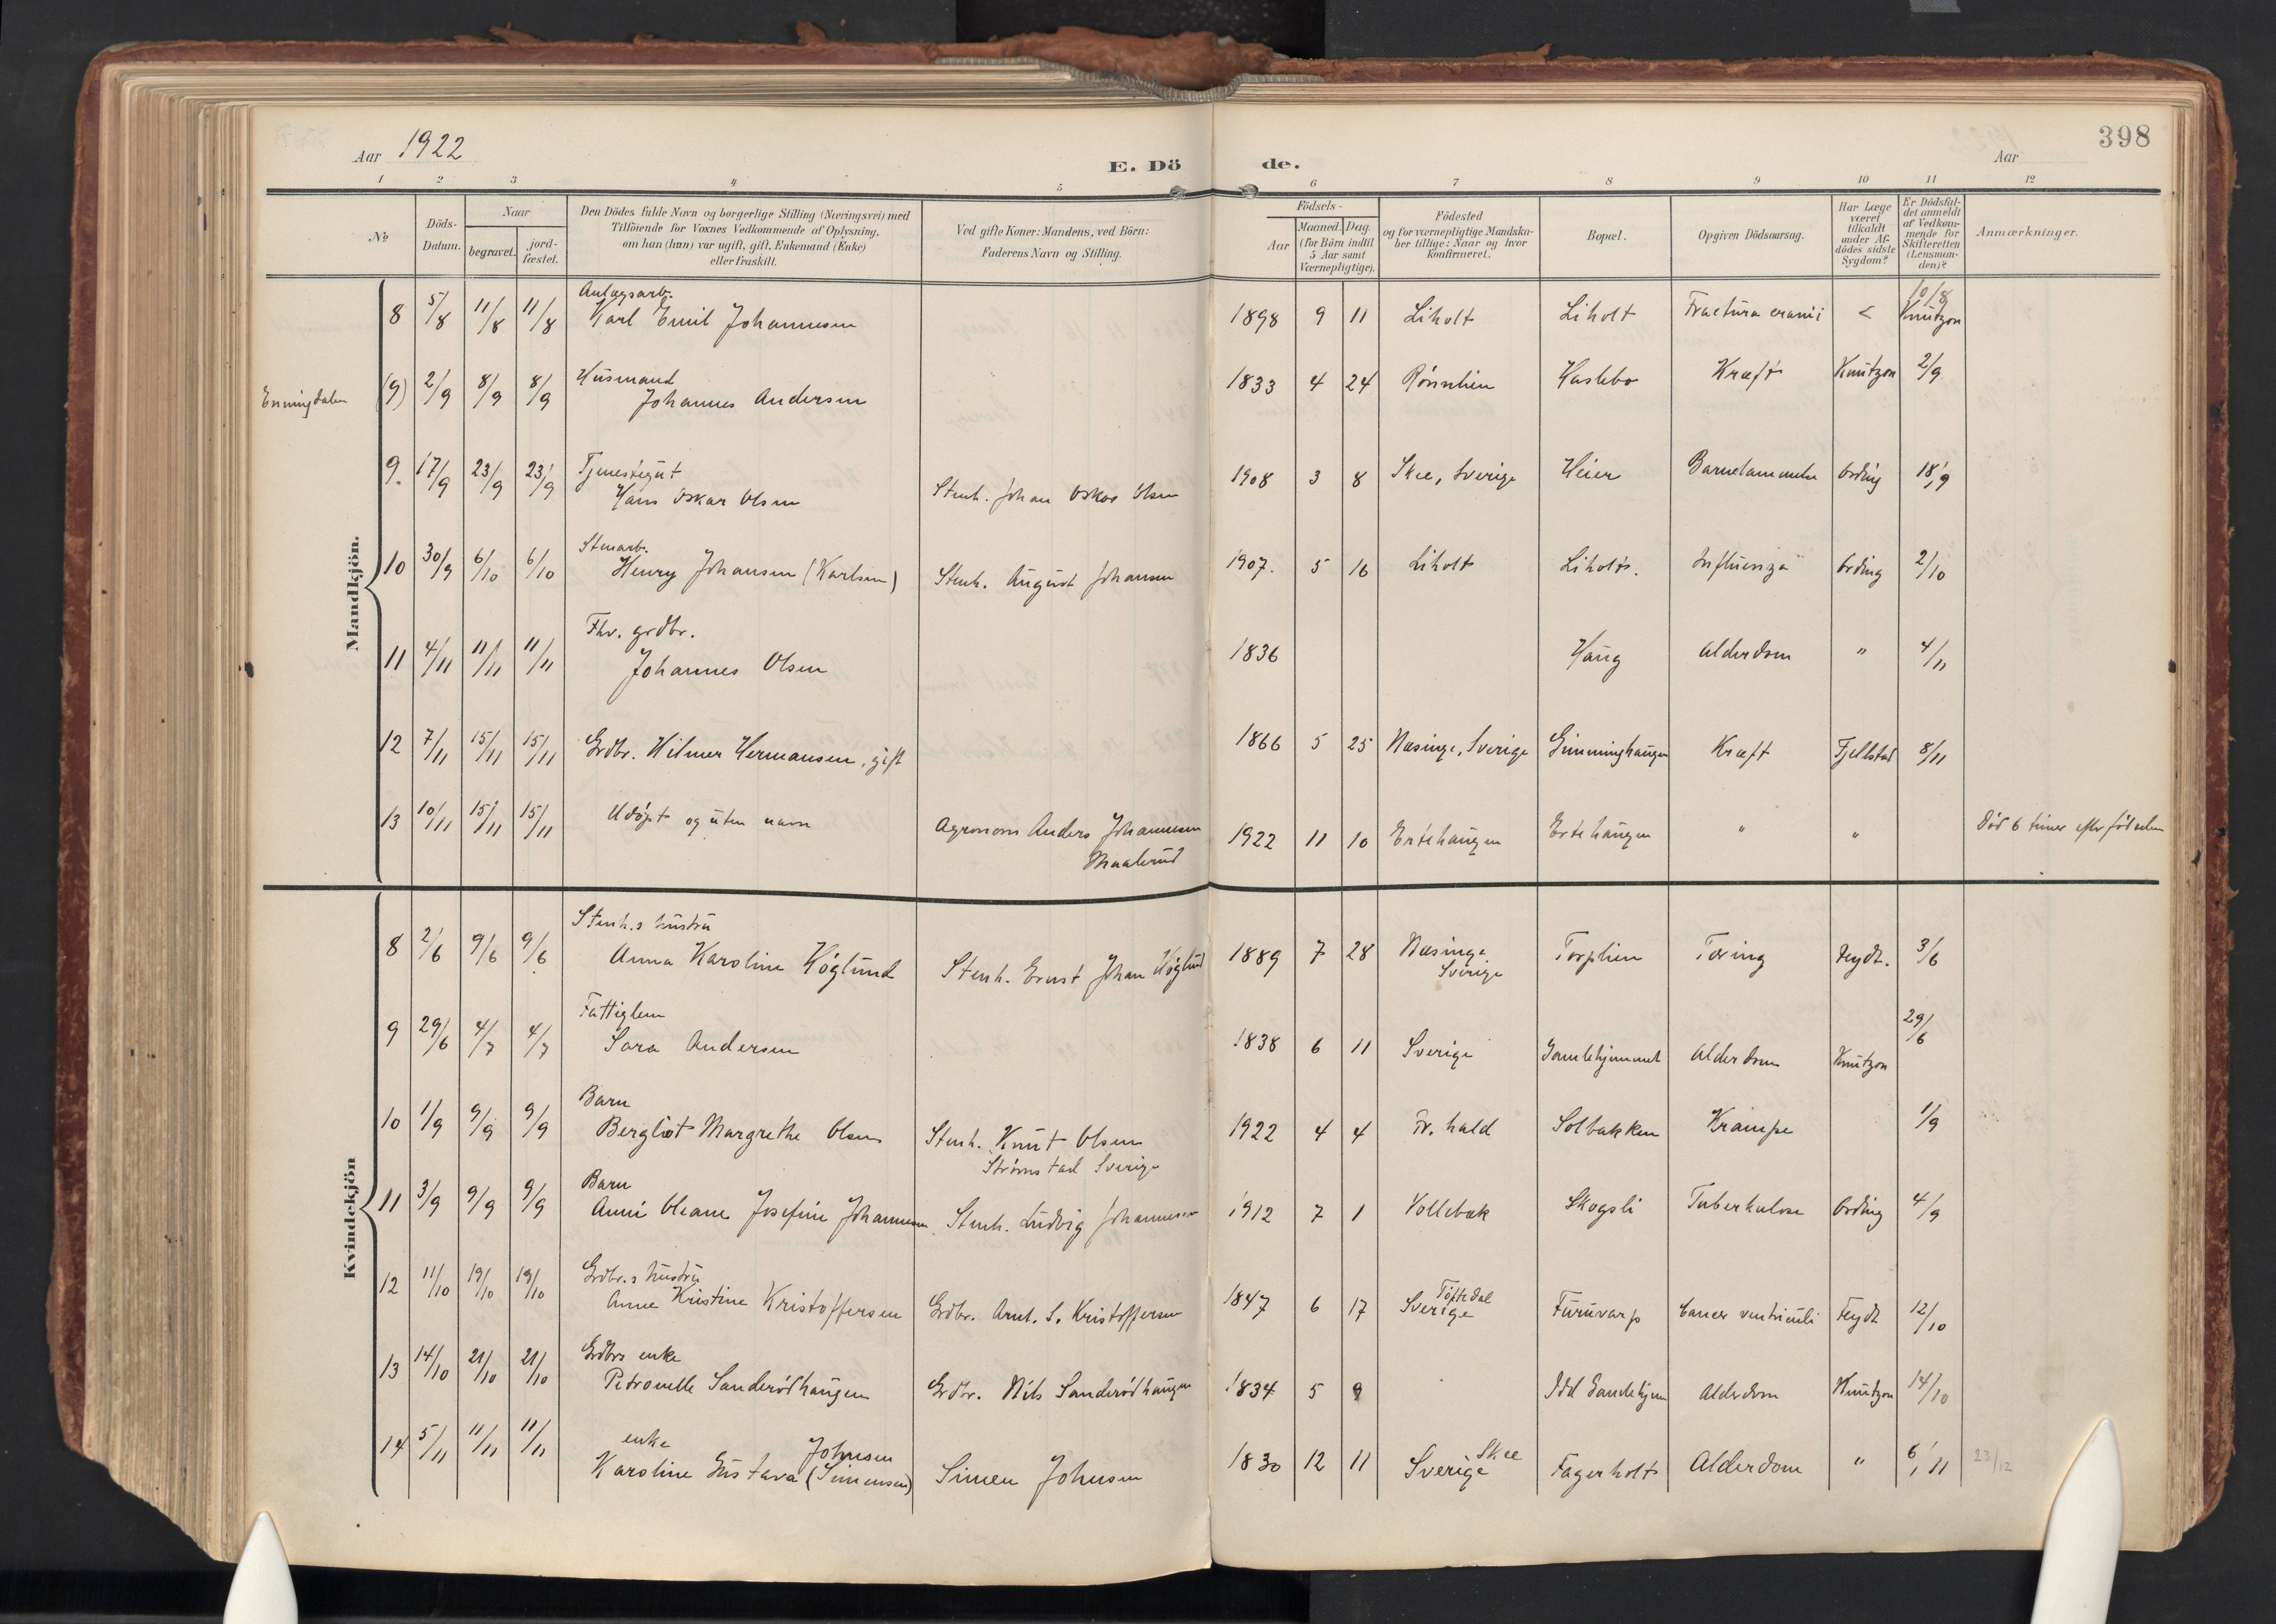 398
Aar 1922
E. Döde.
Aar
1 2 3 4 5 6 7 8 9 10 11 12
No.
Döds-Datum.
Naar
begravet.
jord-fæstet.
Den Dödes fulde Navn og borgerlige Stilling (Næringsvei) med
Tilföiende for Voxnes Vedkommende af Oplysning,
om han (hun) var ugift, gift, Enkemand (Enke)
eller fraskilt.
Ved gifte Koner: Mandens, ved Börn:
Faderens Navn og Stilling.
Födsels-
Aar
Maaned. Dag.
(for Börn indtil
5 Aar samt
Værnepligtige).
Födested
og for værnepligtige Mandska-
ber tillige: Naar og hvor
konfirmeret.
Bopæl.
Opgiven Dödsaarsag.
Har Læge
været
tilkaldt
under Af-
dödes sidste
Sygdom?
Er Dödsfal-
det anmeldt
af Vedkom-
mende for
Skifteretten
(Lensman-
den)?
Anmærkninger.
Mandkjön.
Anlægsarb. 10/8
8 5/8 11/8 11/8 Karl Emil Johannesen 1898 9 11 Liholt Liholt Fractura cranii < Knutzon
Enningdalen (9) 2/9 8/9 8/9 Husmand
Johannes Andersen 1833 4 24 Rønnlien Haslebo Kræft Knutzon 2/9
9. 17/9 23/9 23/9 Tjenestegut
Hans Oskar Olsen Stenh. Johan Oskar Olsen 1908 3 8 Skee, Sverige Heier Barnelammelse Ording 18/9
10 30/9 6/10 6/10 Stenarb.
Henry Johansen (Karlsen) Stenh. August Johansen 1907. 5 16 Liholt Liholt. Influenza Ording 2/10
11 4/11 11/11 11/11 Fhv. grdbr.
Johannes Olsen 1836 Haug Alderdom " 4/11
12 7/11 15/11 15/11 Grdbr. Hilmer Hermansen, gift 1866 5 25 Næsinge, Sverige Gimminghaugen Kræft Fjellstad 8/11
13 10/11 15/11 15/11 Udøpt og uten navn Agronom Anders Johannesen
Maalerud 1922 11 10 Ertehaugen Ertehaugen " " Död 6 timer efter födselen
Kvindekjön
8 2/6 9/6 9/6 Stenh.s hustru
Anna Karoline Höglund Stenh. Ernst Johan Höglund 1889 7 28 Næsinge
Sverige Torplien Tæring Feydt. 3/6
9 29/6 4/7 4/7 Fattiglem
Sara Andersen 1838 6 11 Sverige Gamlehjemmet Alderdom Knutzon 29/6
10 1/9 9/9 9/9 Barn
Bergliot Margrethe Olsen Stenh. Knut Olsen
Strømstad Sverige 1922 4 4 Fr. hald Solbakken Krampe 1/9
11 3/9 9/9 9/9 Barn
Anni Oleane Josefine Johannesen Stenh. Ludvig Johannesen 1912 7 1 Kollebæk Skogsli Tuberkulose Ording 4/9
12 11/10 19/10 19/10 Grdbr.s hustru
Anne Kristine Kristoffersen Grdbr. Arnt. S. Kristoffersen 1847 6 17 Töftedal
Sverige Furuvarp Cancer ventriculi Feydt 12/10
13 14/10 21/10 21/10 Grdbrs enke
Petronelle Sanderödhaugen Grdbr. Nils Sanderödhaugen 1834 5 9 Idd Gamlehjem Alderdom Knutzon 14/10
14 5/11 11/11 11/11 enke Johnsen
Karoline Gustava (Simensen) Simen Johnsen 1830 12 11 Skee
Sverige Fagerholt Alderdom " 6/11 23/12